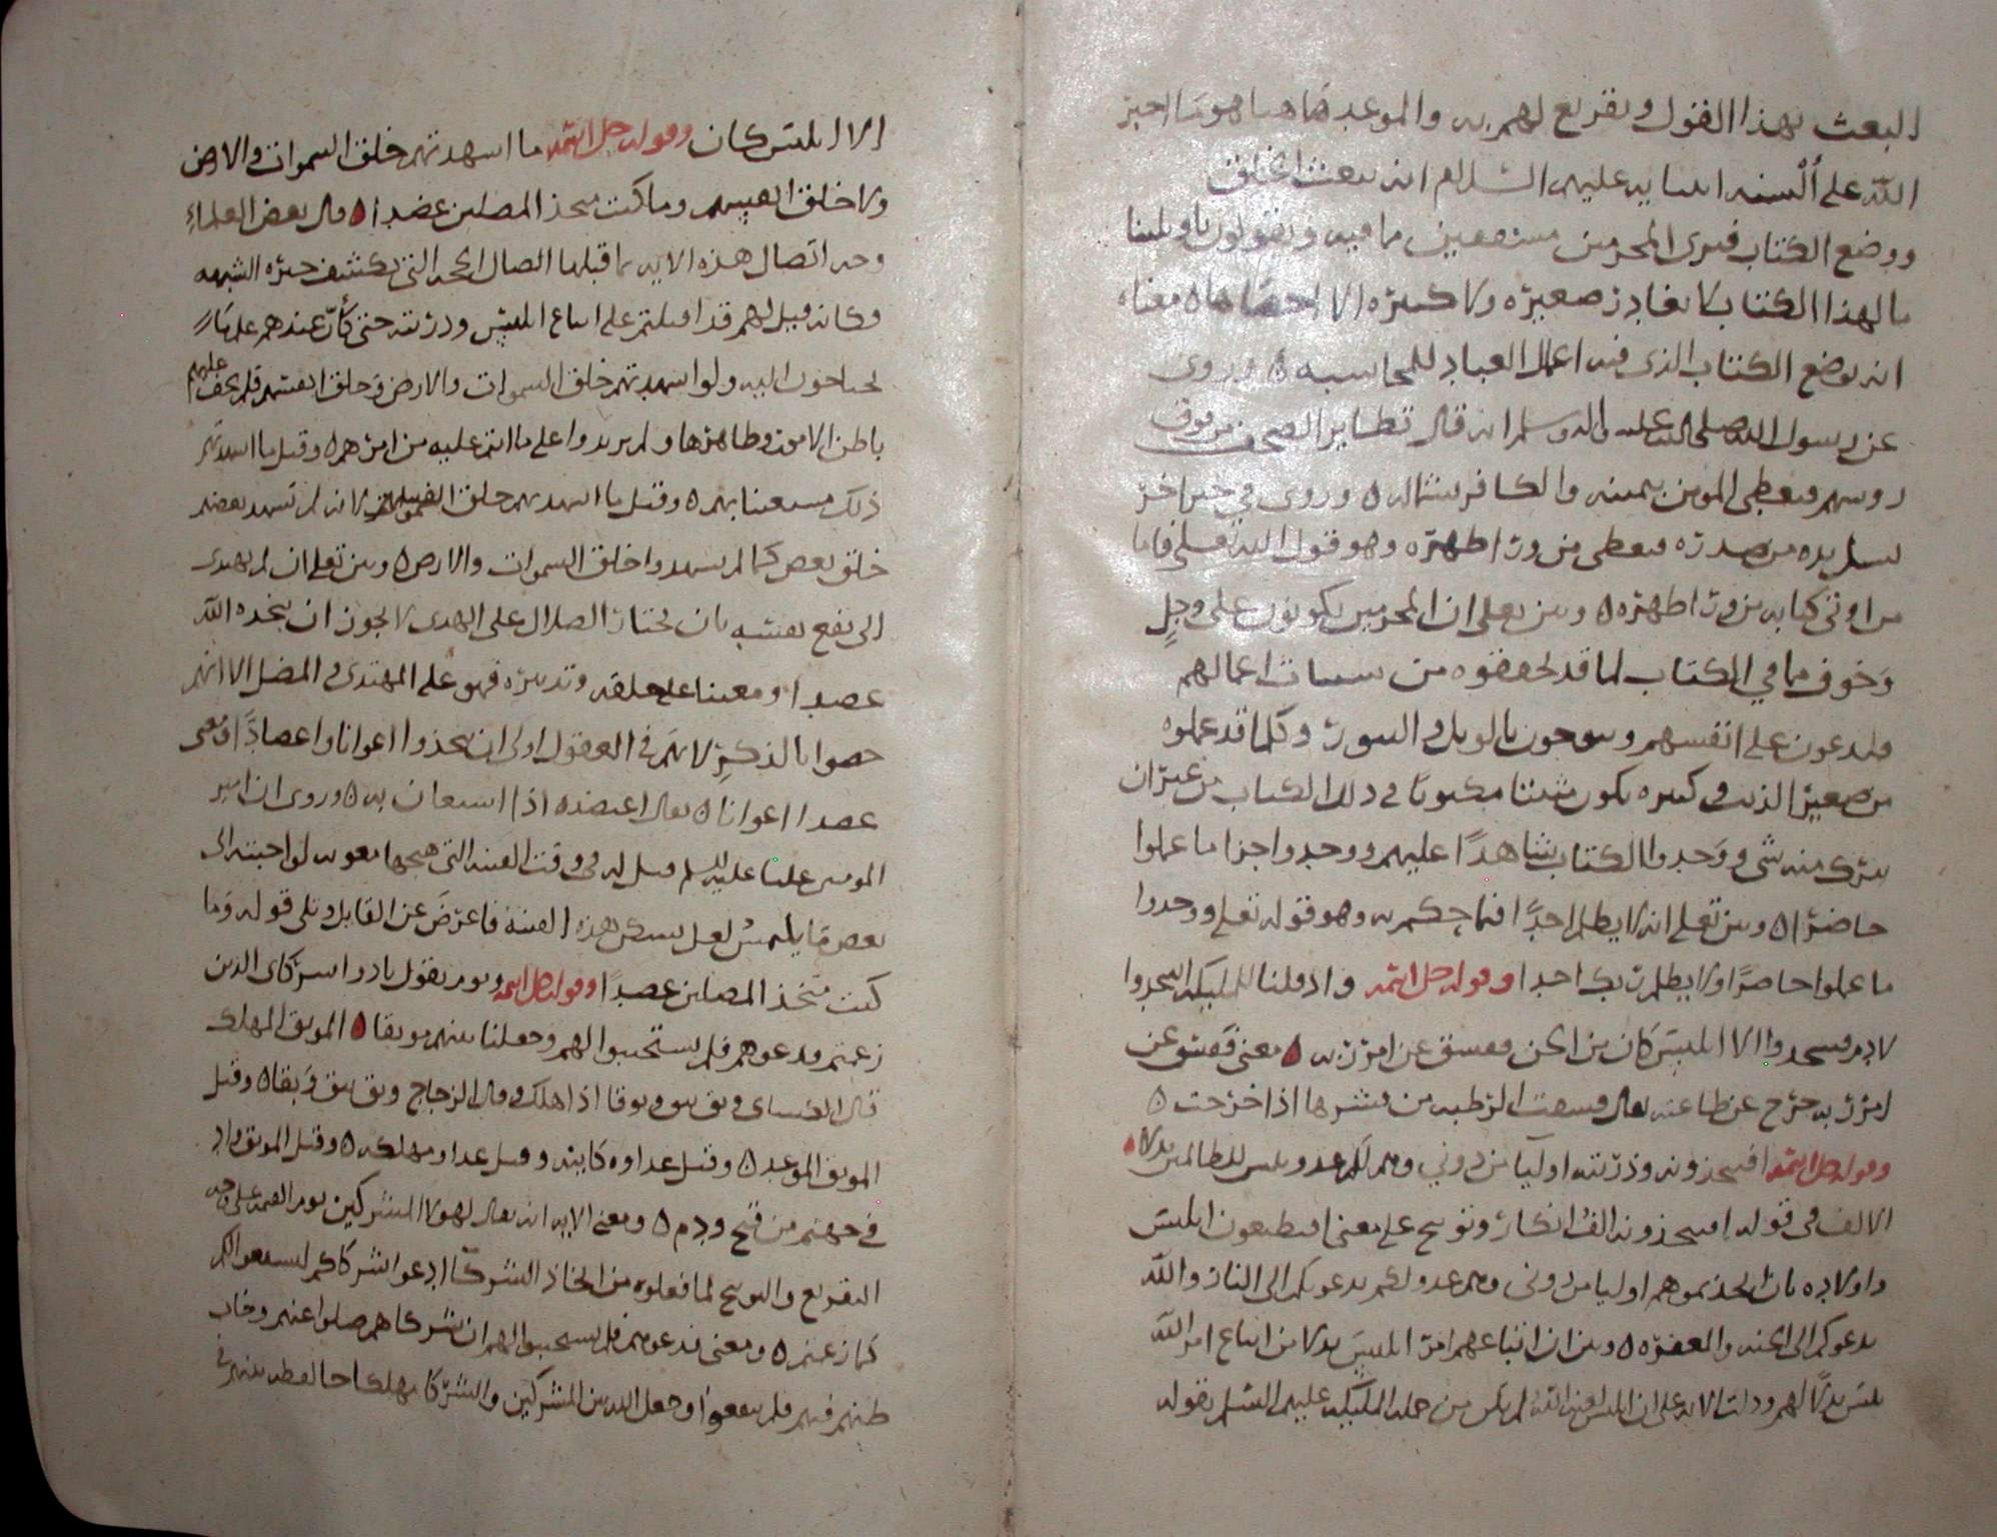 البعث بهذا القول وتقريع لهم به والموعد هاهنا هو ما اخبر
الله على ألسنة انبيايه عليهم السلام انه يبعث الخلق
ووضع الكتاب فترى المجرمين مشفقين مما فيه ويقولون ياويلتنا
مالهذا الكتاب لا يغادر صغيره ولا كبيره الا احصاها ه معناه
انه يوضع الكتاب الذى فيه اعمال العباد للمحاسبه ه وروى
عن رسول الله صلى الله عليه واله وسلم انه قال تطاير الصحف من فوق
روسهم فيعطى المومن بيمينه والكافر بشماله ه وروى في خبر اخر
تسل يده من صدره فيعطى من ورا ظهره وهو قول الله تعلى فاما
من اوتى كتابه من ورا ظهره ه وبين تعلى ان المجرمين يكونون على وجل
وخوف مما في الكتاب لما قد تحققوه من سيات اعمالهم
فيدعون على انفسهم وينوحون بالويل والثبور وكلما قد عملوه
من صغير الذنب وكبيره يكون مثبتا مكتوبا فى ذلك الكتاب من غير ان
يترك منه شى ووجدوا الكتاب شاهدًا عليهم ووجدوا جزا ما عملوا
حاضرا ه وبين تعلى انه لا يظلم احدًا فيما حكم به وهو قوله تعلى ووجدوا
ما عملوا حاضرًا ولا يظلم ربك احدا وقوله جل اسمه واذ قلنا للمليكه اسجدوا
لادم فسجدوا الا ابليس كان من الجن ففسق عن امر ربه ه معنى ففسق عن
امر ربه خرج عن طاعته يقال فسقت الرطبه من قشرها اذا خرجت ه
وقوله جل اسمه افتتخذونه وذريته اوليا من دوني وهم لكم عدو بيس للظالمين بدلا ه
الالف فى قوله افتتخذونه الف انكار وتوبيخ على معنى افتطيعون ابليس
واولاده بان اتخذتموهم اوليا من دونى وهم عدو لكم يدعوكم الى النار والله
يدعوكم الى الجنه والمغفره ه وبين ان اتباعهم امر ابليس بدلا من اتباع امر الله
بيس بدلًا لهم ودلت الايه على ان ابليس لعنه الله لم يكن من جمله المليكه عليهم السلم بقوله
الا ابليس كان وقوله جل اسمه ما اشهدتهم خلق السموات والارض
ولا خلق انفسهم وما كنت متخذ المضلين عضدا ه قال بعض العلماء
وجه اتصال هذه الايه بما قبلها اتصال الحجه التى تكشف حيره الشبهه
فكانه قيل لهم قد اقبلتم على اتباع ابليس وذريته حتى كأن عندهم علمًا
تحتاجون اليه ولو اشهدتهم خلق السموات والارض وخلق انفسهم فلم يخف عليهم
باطن الامور وظاهرها ولم يزيدوا على ما انتم عليه من امرهم ه وقيل ما اشهدتهم
ذلك مستعينا بهم ه وقيل ما اشهدتهم خلق انفسهم لانه لم تشهد بعضهم
خلق بعض كما لم يشهدوا خلق السموات والارض ه وبين تعلى ان لم يهتدى
الى نفع نفسه بان يختار الضلال على الهدى لا يجوز ان يتخذه الله
عضدا ومعينا على خلقه وتدبيره فهو على المهتدى والمضل الا انهم
خصوا بالذكر لانهم فى العقول اولى ان يتخذوا اعوانا واعضادًا ومعنى
عضدا اعوانا ه يقال اعتضده اذا استعان به ه وروى ان امير
المومنين عليا عليه السلم قيل له فى وقت الفتنه التى هيجها معويه لو اجبته الى
بعض ما يلتمس لعل تسكن هذه الفتنة فاعرض عن القايل وتلى قوله وما
كنت متخذ المضلين عضدًا وقوله جل اسمه ويوم يقول نادوا شركاى الذين
زعمتم فدعوهم فلم يستجيبوا لهم وجعلنا بينهم موبقا ه الموبق المهلك
قال الكساى وبق يبق وبوقا اذا هلك وقال الزجاج وبق يبق وبقا ه وقيل
الموبق الموعد ه وقيل عداوه كاينه وقيل عداوه مهلكه ه وقيل الموبق واد
في جهنم من قيح ودم ه ومعنى الايه انه يقال لهولا المشركين يوم القيمه على وجه
التقريع والتوبيخ لما فعلوه من اتخاذ الشركا ادعوا شركاكم ليستجيبوا لكم
كما زعمتم ه ومعنى فدعوهم فلم يستجيبوا لهم ان شركاهم ضلوا عنهم وخاب
ظنهم فيهم فلم ينفعوا وجعل الله بين المشركين والشركا مهلكا حالفطه بينهم فى